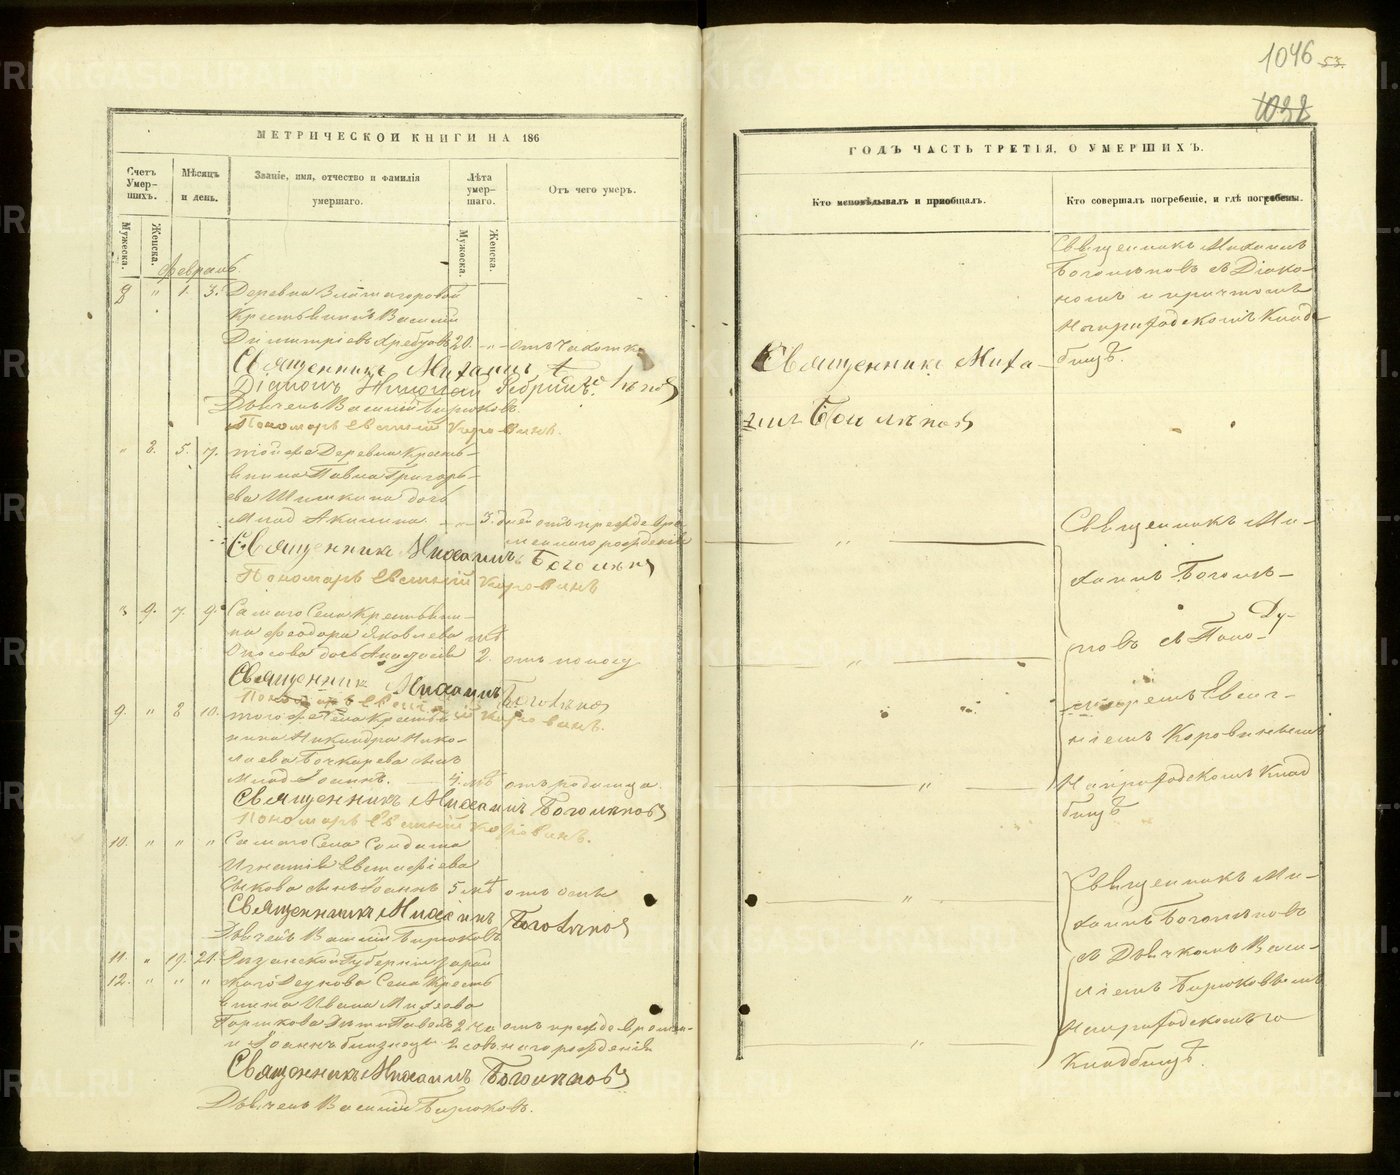 1046 53.
1032
МЕТРИЧЕСКОИ КНИГИ НА 186
Счетъ Умер-шихъ.
Мѣсяцъ и день.
Званіе, имя, отчество и фамилія умершаго.
Лѣта умер-шаго.
Отъ чего умеръ.
Мужеска. Женска.
Мужеска. Женска.
Февраль.
8 " 1. 3. Деревни
Крестьянинъ Василій
Димитріевъ 20. " отъ чахотки
Священникъ Михаилъ
Діаконъ Николай
Дьячекъ Василій Бирюковъ
Пономарь Евгеній Коровинъ.
" 8. 5. 7. тойже Деревни Кресть-
янина Павла Григорь-
ева Шишкина дочь
Млад. Акилина " 3. дней отъ преждевре-
меннаго рожденія
Священникъ Михаилъ Боголѣповъ
Пономарь Евгеній Коровинъ
9. 7. 9. Самаго Села Крестьяни-
на Феодора Яковлева лѣт
дочь 2. отъ поносу
Священник Михаилъ Боголѣповъ
Пономарь Евгеній Коровинъ.
9. " 8 10. тогоже Села Крестья
нина Никандра Нико-
лаева Бочкарева сынъ
Млад. Іоаннъ. 4. лѣт отъ родимца.
Священникъ Михаилъ Боголѣповъ
Пономарь Евгеній Коровинъ.
10. " " " Самаго Села Солдата
Игнатія Евстафіева
сынъ Іоаннъ 5 лѣт отъ оспы
Священникъ Михаилъ Боголѣповъ
Дьячекъ Василій Бирюковъ
11. " 19. 21. Рязанской Губерніи Зарай
12. " " " скаго Села Кресть
янина Ивана
Горшкова Дѣти Павелъ 2 ча отъ преждевремен-
и Іоаннъ близнецы 2 совъ наго рожденія
Священникъ Михаилъ Боголѣповъ
Дьячекъ Василій Бирюковъ.
ГОДЪ ЧАСТЬ ТРЕТІЯ, О УМЕРШИХЪ.
Кто исповѣдывалъ и приобщалъ.
Кто совершалъ погребеніе, и гдѣ погребены.
Священникъ Миха-
илъ Боголѣповъ
Священникъ Михаилъ
Боголѣповъ съ Діако-
номъ и причтомъ
На приходскомъ Клад-
бищѣ.
Священникъ Ми-
хаилъ Боголѣ-
повъ съ Поно-
маремъ Евге-
ніемъ Коровинымъ
На приходскомъ Клад
бищѣ
Священникъ Ми-
хаилъ Боголѣповъ
съ Дьячкомъ Васи-
ліемъ Бирюковымъ
На приходскомъ
Кладбищѣ.